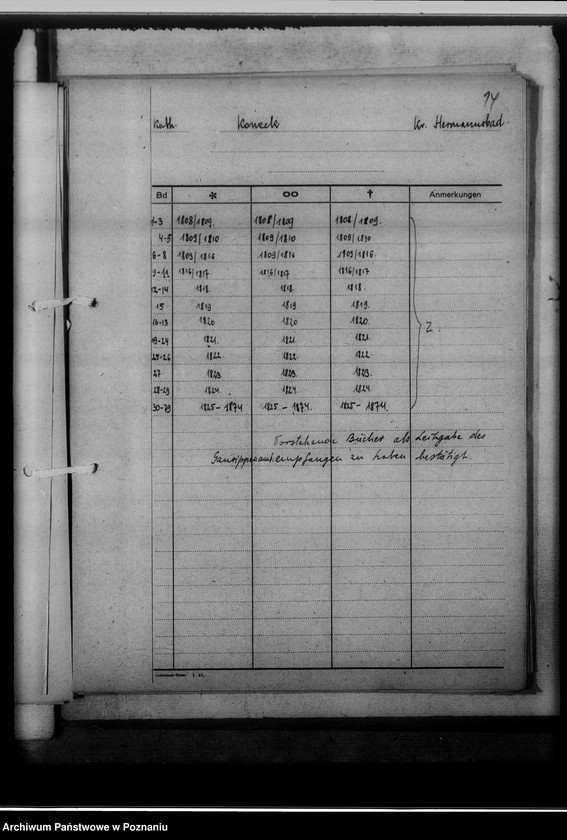 14
Kath. Koneck Kr. Hermannsbad.
Bd * oo † Anmerkungen
1-3 1808/1809. 1808/1809 1808/1809.
4-5 1809/1810 1809/1810 1809/1810
6-8 1809/1816 1809/1816 1809/1816.
9-11 1816/1817. 1816/1817 1816/1817
12-14 1818. 1818. 1818.
15 1819 1819 1819.
16-18 1820 1820 1820. Z.
19-24 1821. 1821. 1821.
25-26 1822. 1822. 1822.
27 1823. 1823. 1823.
28-29 1824. 1824. 1824.
30-79 1825-1874 1825-1874. 1825-1874.
Vorstehende Bücher als Leihgabe des
Gausippenamt empfangen zu haben bestätigt.
Archiwum Państwowe w Poznaniu